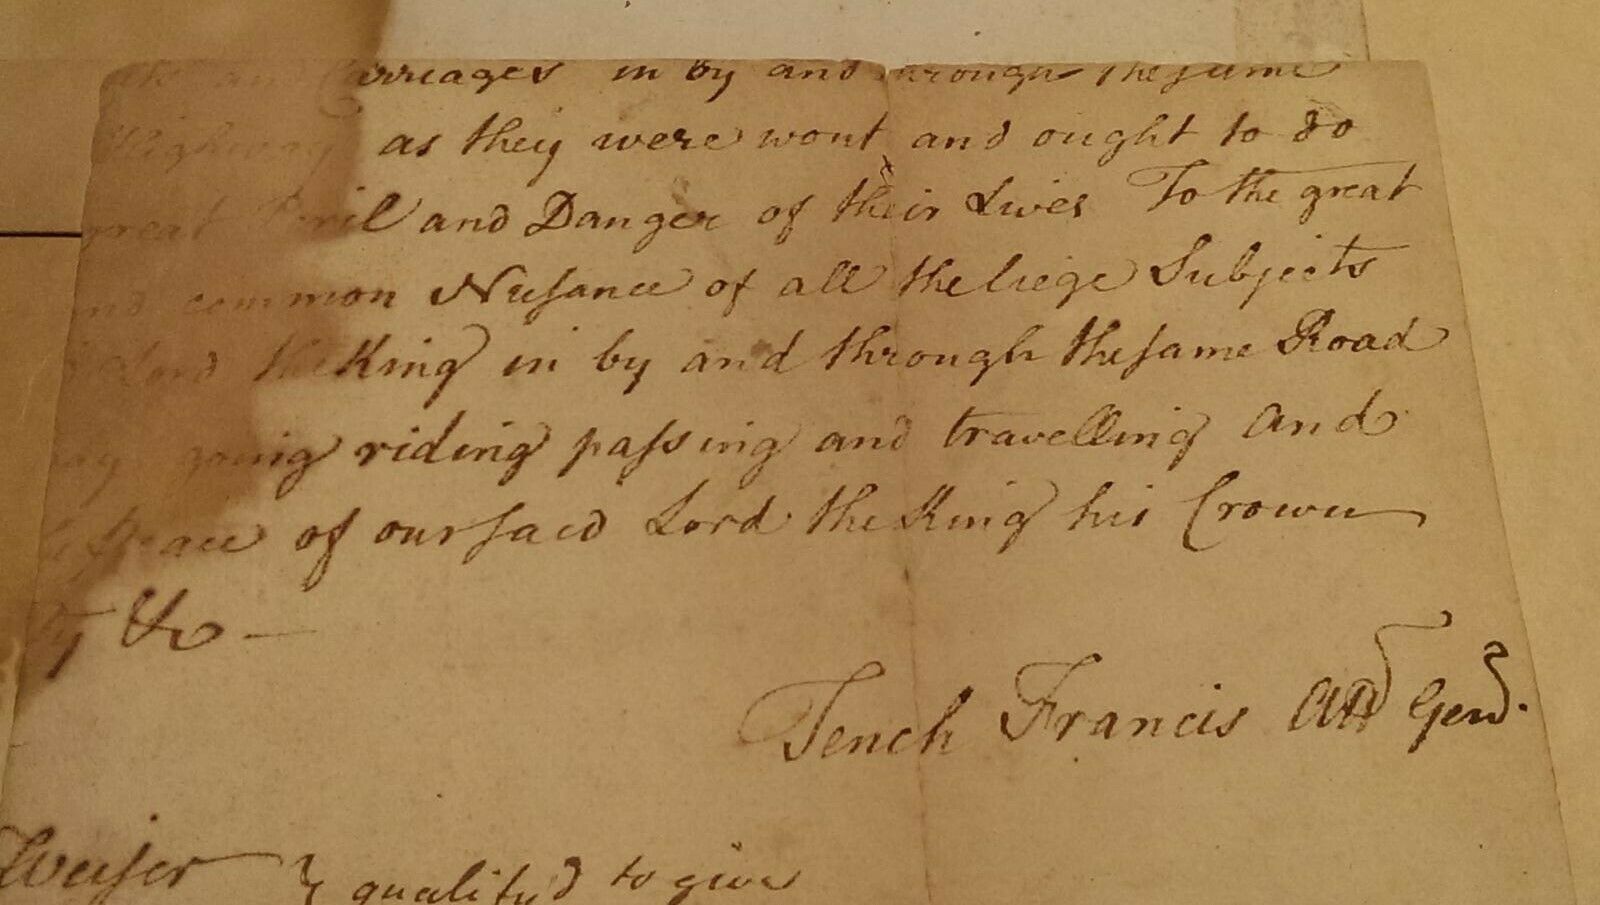 Carriages in by and through the same
Highway as they were wont and ought to do
great Peril and Danger of their Lives To the great
and common Nusance of all the liege Subjects
Lord the King in by and through the same Road
going riding passing and travelling and
Peace of our said Lord the King his Crown
&c —
Tench Francis Att Genl.
Weiser } qualify'd to give